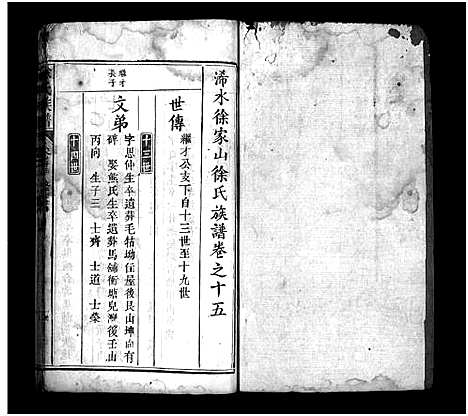 浠水徐家山徐氏族譜卷之十五
世傳
繼才公支下自十三世至十九世
十三世
繼才
長子
文弟
字思仲生卒遺葬毛牯坳住屋後艮山坤向有
碑　娶熊氏生卒遺葬馬鋪衝塘兒灣後壬山
丙向　生子三　士齊　士道　士榮
十四世